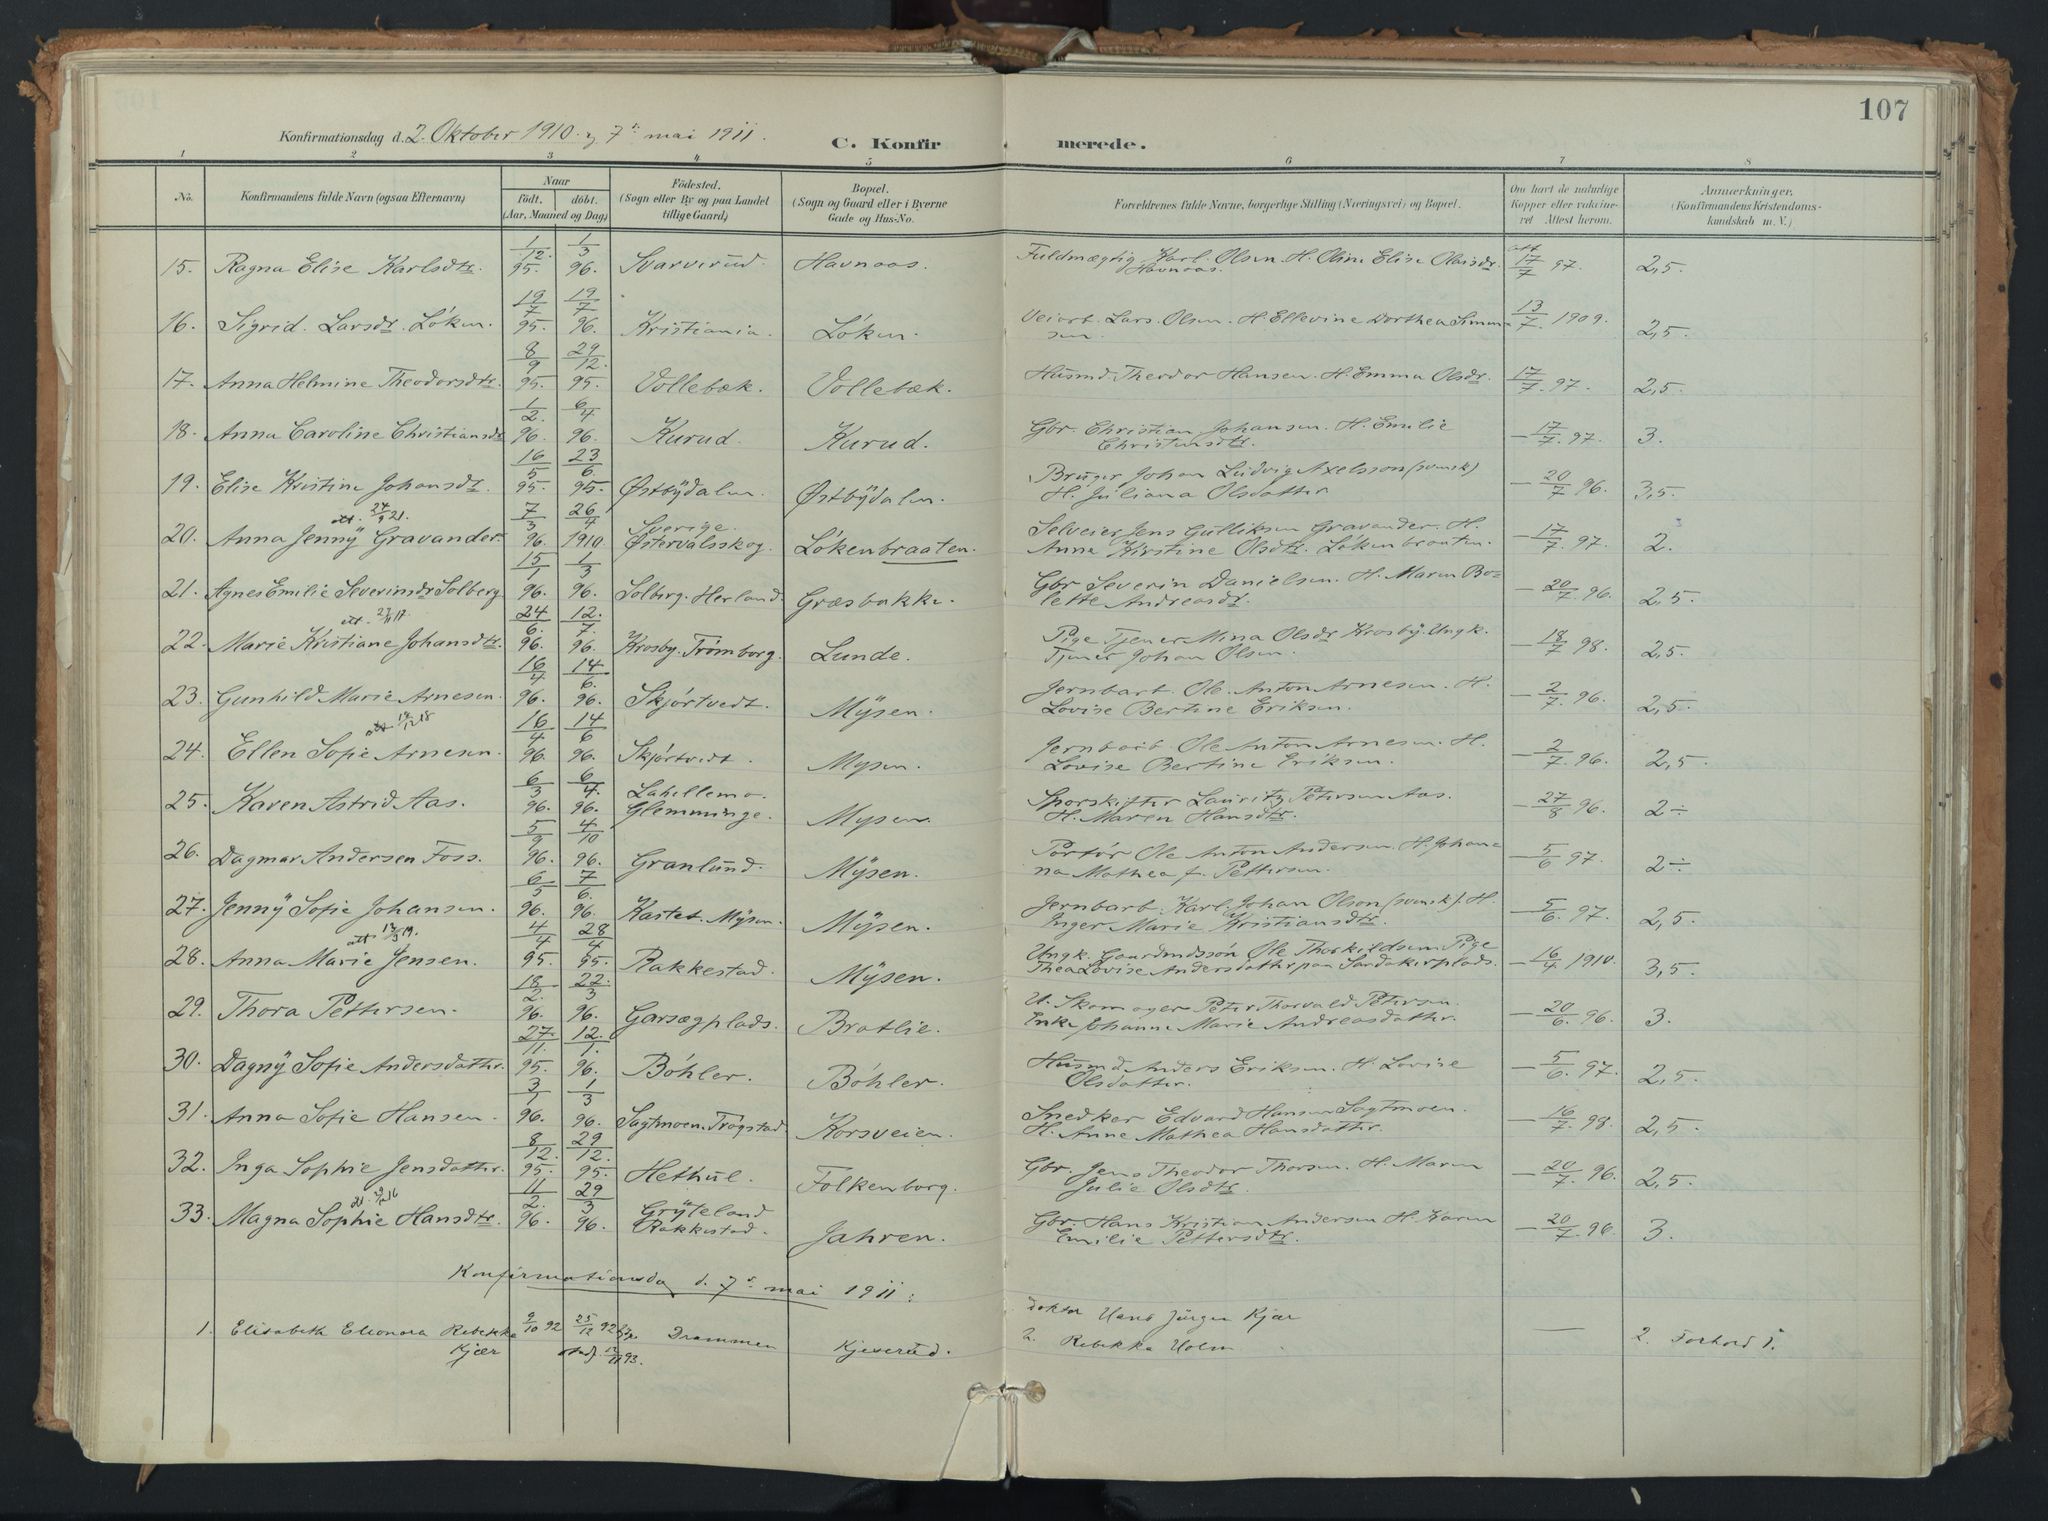 107
Konfirmationsdag d. 2. Oktober 1910. og 7de mai 1911.
C. Konfir merede.
1 2 3 4 5 6 7 8
No. Konfirmandens fulde Navn (ogsaa Efternavn) Naar født. døbt. (Aar, Maaned og Dag) Fødested. (Sogn eller By og paa Landet tillige Gaard) Bopæl. (Sogn og Gaard eller i Byerne Gade og Hus-No. Forældrenes fulde Navne, borgerlige Stilling (Næringsvei) og Bopæl. Om havt de naturlige Kopper eller vakcineret Attest herom. Anmærkninger. (Konfirmandens Kristendomskundskab m. V.)
15. Ragna Elise Karlsdtr. 1/12. 95. 1/3 96. Svarverud. Havnaas. Fuldmægtig Karl Olsen. H. Oline Elise Olaisdr. Havnaas. att 17/7 97. 2,5.
16. Sigrid Larsdr. Løken. 19/7 95. 19/7 96. Kristiania. Løken. Veiarb. Lars Olsen. H. Ellevine Dorthea Simensen. 13/7. 1909. 2,5.
17. Anna Helmine Theodorsdtr. 8/9 95. 29/12. 95. Vollebæk. Vollebæk. Husmd. Theodor Hansen. H. Emma Olsdr. 17/7 97. 2,5.
18. Anna Caroline Christiansdtr 1/2. 96. 6/4 96. Kurud. Kurud. Gbr. Christian Johansen. H. Emilie Christensdtr. — 17/7. 97. 3.
19. Elise Kristine Johansdtr. 16/5 95. 23/6. 95. Østbydalen. Østbydalen. Bruger Johan Ludvig Axelsson (svensk) H. Juliana Olsdatter — 20/7 96. 3,5.
att. 24/9 21.
20. Anna Jenny Gravander. 7/3 96. 26/4 1910. Sverige. Østervalsskog. Løkenbraaten. Selveier Jens Gulliksen Gravander. H. Anne Kirstine Olsdtr. Løkenbraaten. — 17/7. 97. 2.
21. Agnes Emilie Severinsdr Solberg 15/1 96. 1/3 96. Solberg. Herland. Græsbakke. Gbr Severin Danielsen. H. Maren Bolette Andreasdr. — 20/7. 96. 2,5.
att. 27/11 17.
22. Marie Kristiane Johansdtr. 24/6. 96. 12./7. 96. Krosby. Trømborg. Lunde. Pige Tjener Mina Olsdr Krosby. Ungk. Tjener Johan Olsen. — 18/7 98. 2,5.
23. Gunhild Marie Arnesen. 16/4 96. 14/6. 96. Skjørtvedt. Mysen. Jernbarb. Ole Anton Arnesen. H. Lovise Bertine Eriksen. — 2/7. 96. 2,5.
24. Ellen Sofie Arnesen. 16/4 96. 14/6 96. Skjørtvedt. Mysen. Jernbarb. Ole Anton Arnesen. H. Lovise Bertine Eriksen. — 2/7. 96. 2,5.
25. Karen Astrid Aas. 6/3 96. 6/4. 96. Lahellemo. Glemminge. Mysen. Sporskifter Lauritz Petersen Aas. H. Maren Hansdtr. — 27/8 96. 2÷
26. Dagmar Andersen Foss. 5/9 96. 4/10 96. Granlund. Mysen. Portør Ole Anton Andersen. H. Johanna Mathea f. Pettersen. — 5/6 97. 2÷
27. Jenny Sofie Johansen. 6/5 96. 7/6. 96. Kastet. Mysen. Mysen. Jernbarb. Karl Johan Olson (svensk). H. Inger Marie Kristiansdtr. — 5/6. 97. 2,5.
28. Anna Marie Jensen. 4/4 95. 28/4 95. Rakkestad. Mysen. Ungk. Gaardmdssøn Ole Thorkildsen. Pige Thea Lovise Andersdatter paa Sandakerplads. — 16/4 1910. 3,5.
29. Thora Pettersen. 18/2. 96. 22./3 96. Garsægplads. Bratlie. U. Skomager Peter Thorvald Petersen. Enke Johanne Marie Andreasdatter. — 20/6. 96. 3.
30. Dagny Sofie Andersdatter. 27./11. 95. 12./1. 96. Bøhler. Bøhler. Husmd Anders Eriksen. H. Lovise Olsdatter. — 5/6. 97. 2,5.
31. Anna Sofie Hansen. 3/1 96. 1/3 96. Sagtmoen. Trøgstad. Korsveien. Snedker Edvard Hansen Sagtmoen. H. Anne Mathea Hansdatter. — 16/7. 98. 2,5.
32. Inga Sophie Jensdatter. 8/12. 95. 29/12. 95. Hethul. Folkenborg. Gbr. Jens Theodor Thorsen. H. Maren Julie Olsdtr. — 20/7. 96. 2,5.
33. Magna Sophie Hansdtr. 11/2. 96. 29/3 96. Gryteland Rakkestad. Jahren. Gbr. Hans Kristian Andersen H. Karen Emilie Pettersdtr. — 20/7. 96. 3.
Konfirmationsda d. 7de mai 1911:
1. Elisabeth Eleonora Rebekka Kjær 9/10 92 25/12 92 Drammen Kjeserud. doktor Hans Jürgen Kjær h. Rebekka Holm — 2. Forhold